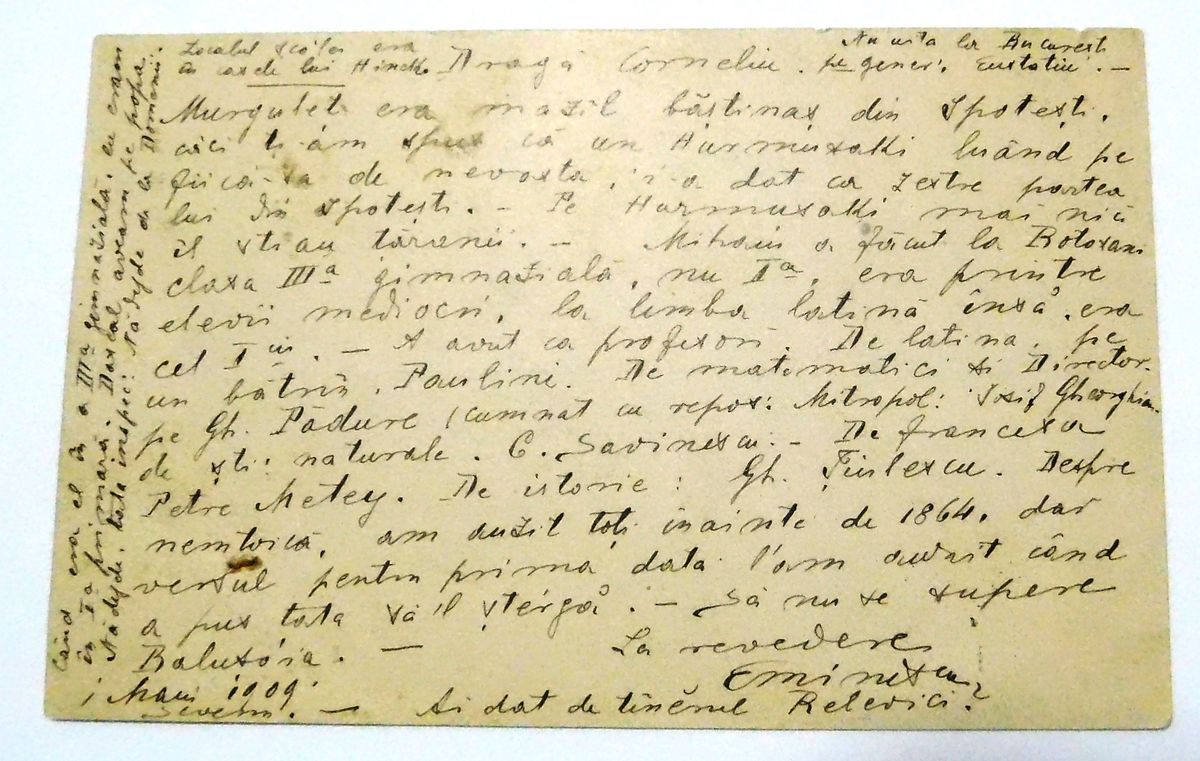 Localul școlei era
în casele lui Hinek.
Nu uita la București
pe gener: Eustatiu. —
Dragă Corneliu.
Murguleț era mazil băștinaș din Spotești,
căci ți-am spus că un Hurmuzaki luând pe
fiică-sa de nevastă, i-a dat ca zestre partea
lui din Spotești. — Pe Hurmuzaki mai nici
îl știau țăranii. — Mihaiu a făcut la Botoșani
clasa IIIª gimnazială, nu Iª, era printre
elevii mediocri, la limba latină însă, era
cel Iiu. — A avut ca profesori. De latina, pe
un bătrîn, Paulini. De matematici și Director.
pe Gh. Pădure (cumnat cu repos: Mitropol: Iosif Gheorghian.
de ști: naturale. C. Savinescu. — De franceza
Petre Metey. De istorie: Gh. Țiulescu. Despre
nemțoică, am auzit toți înainte de 1864, dar
versul pentru prima data l'am auzit când
a pus tata să'l șteargă. — Să nu se supere
Balușóia. — La revedere
Eminescu
1 Maiu 1909.
Severin. — Ai dat de tinĕrul Relevici?
Când era el în a IIIª gimnazială, eu eram
în Iª primară. Dascăl aveam pe popa
Nădejde, tata inspec: Nădejde de la Domenii.